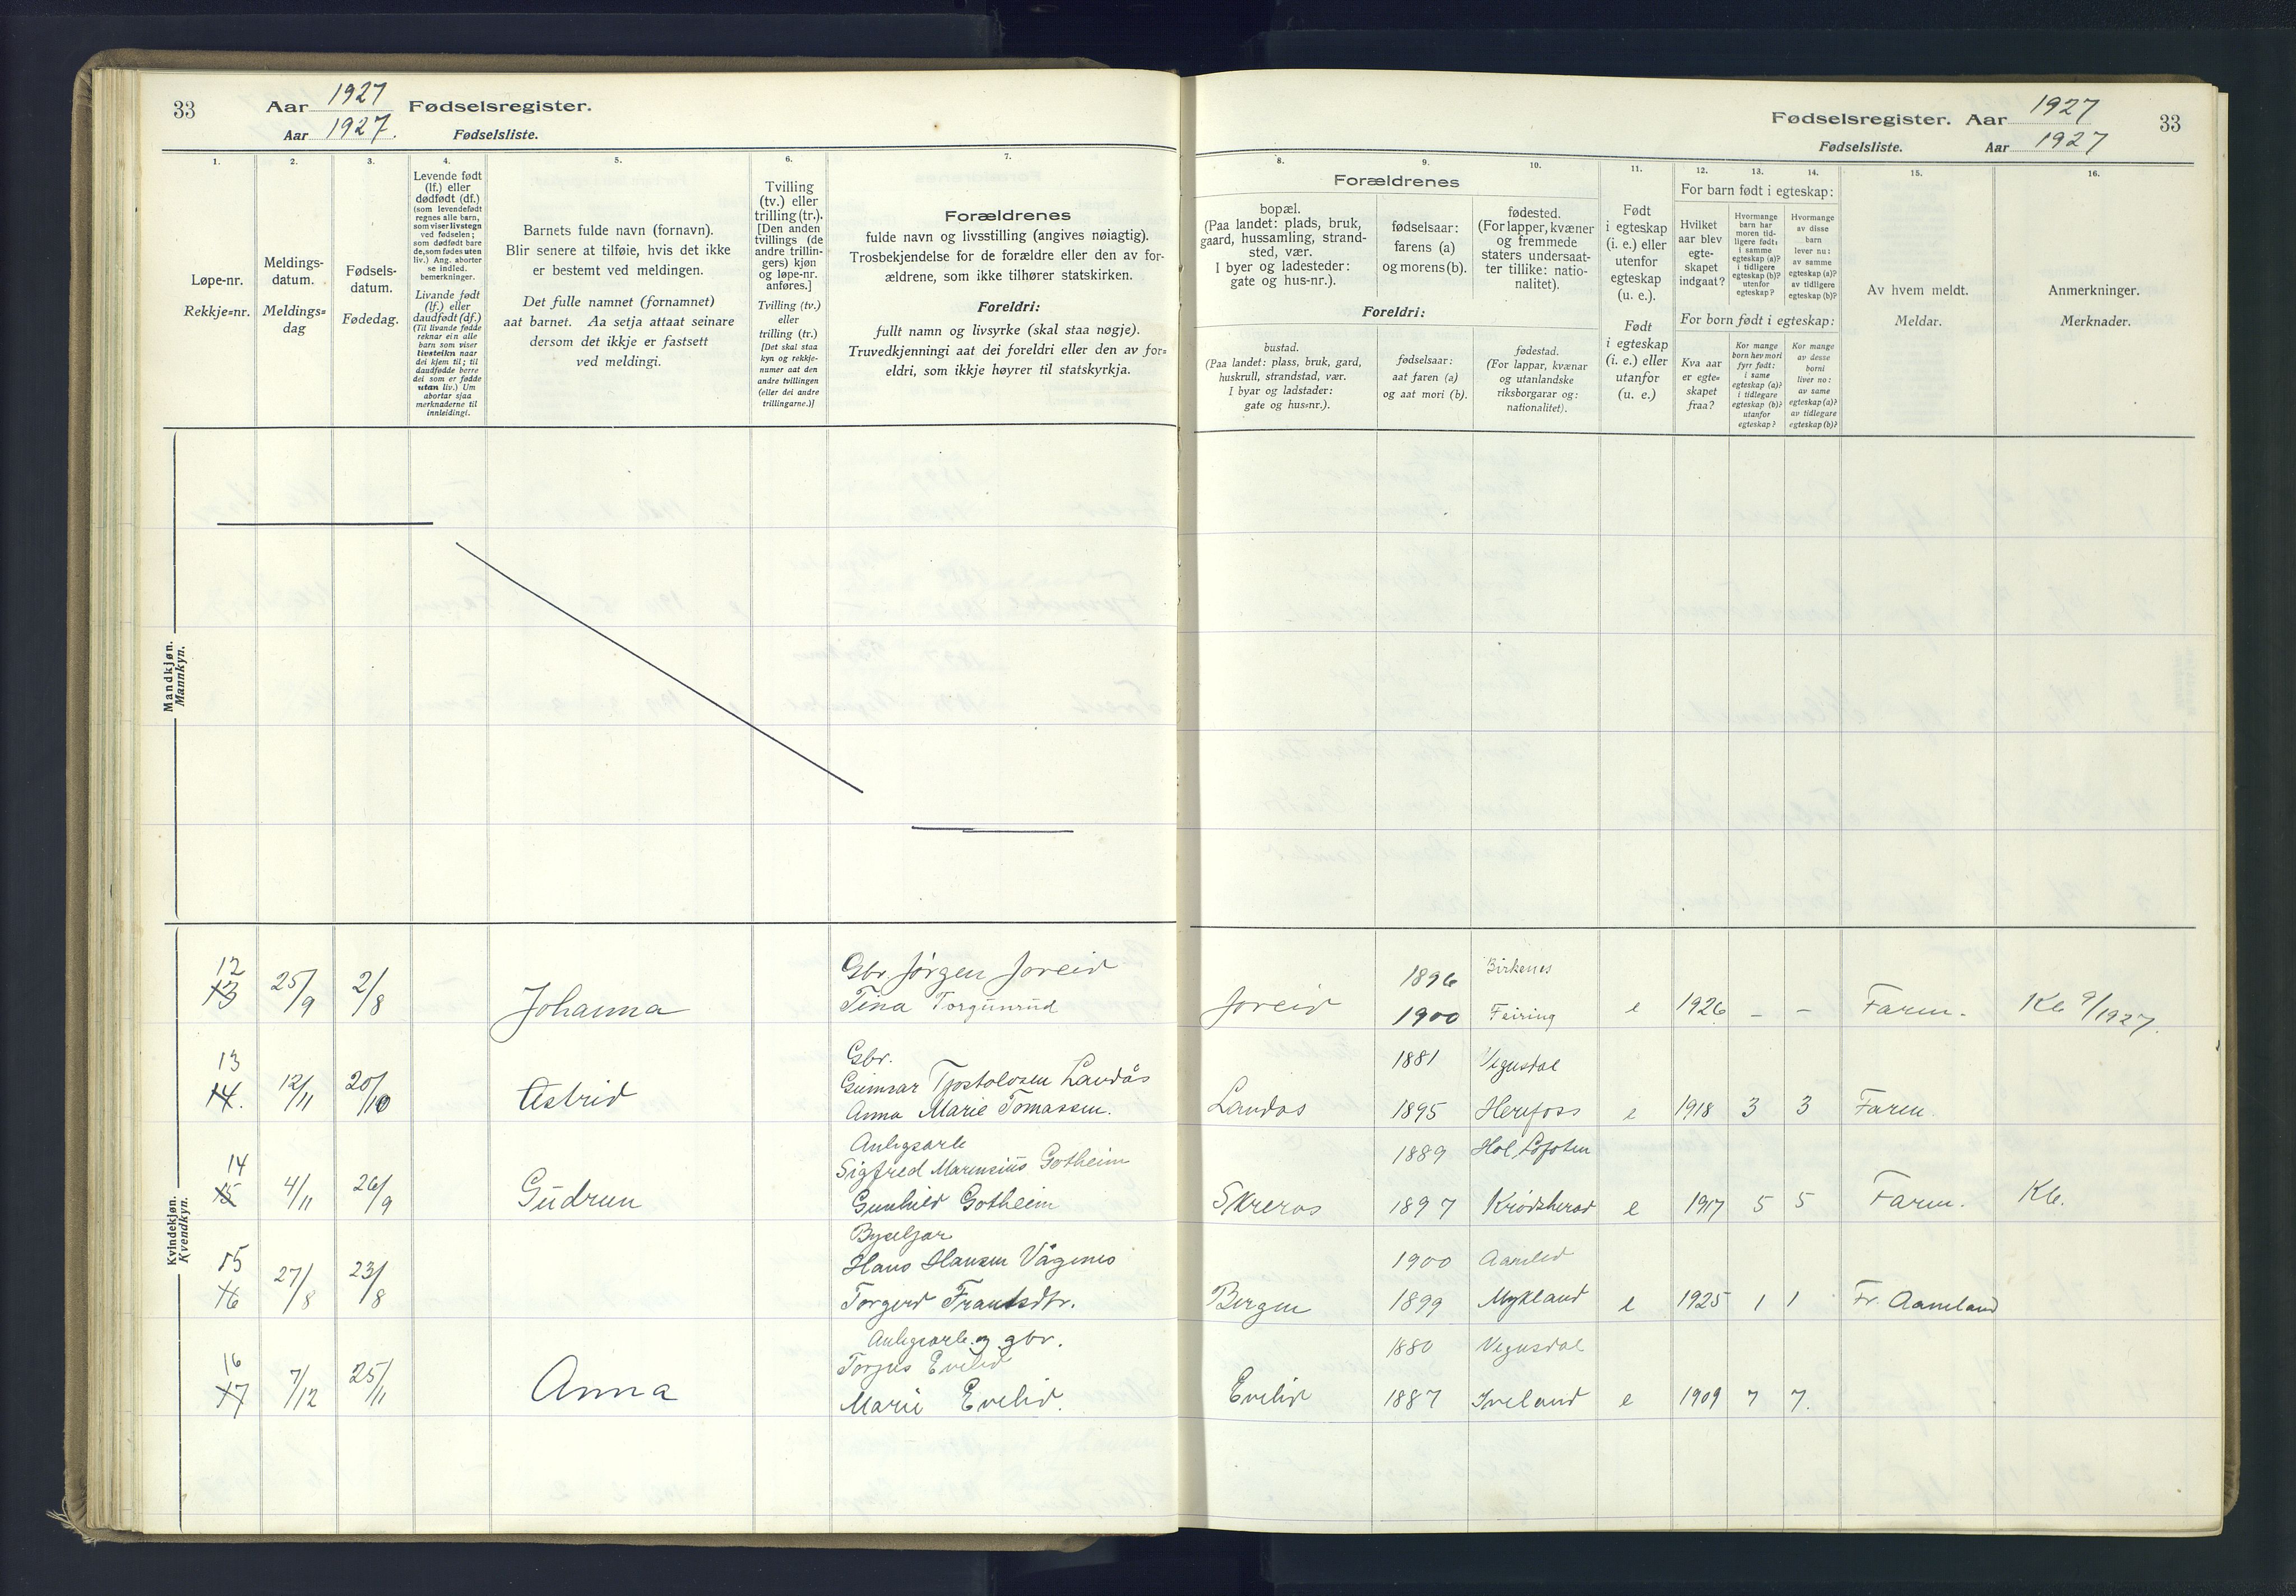 33
Aar 1927 Fødselsregister.
Aar 1927. Fødselsliste.
1.
Løpe-nr.
Rekkje=nr.
2.
Meldings-
datum.
Meldings=
dag
3.
Fødsels-
datum.
Fødedag.
4.
Levende født
(lf.) eller
dødfødt (df.)
(som levendefødt
regnes alle barn,
som viser livstegn
ved fødselen;
som dødfødt bare
de, som fødes uten
liv.) Ang. aborter
se indled.
bemerkninger.
Livande født
(lf.) eller
daudfødt (df.)
(Til livande fødde
reknar ein alle
barn som viser
livsteikn naar
dei kjem til; til
daudfødde berre
dei som er fødde
utan liv.) Um
abortar sjaa
merknaderne til
innleidingi.
5.
Barnets fulde navn (fornavn).
Blir senere at tilføie, hvis det ikke
er bestemt ved meldingen.
Det fulle namnet (fornamnet)
aat barnet. Aa setja attaat seinare
dersom det ikkje er fastsett
ved meldingi.
6.
Tvilling
(tv.) eller
trilling (tr.).
[Den anden
tvillings (de
andre trillin-
gers) kjøn
og løpe-nr.
anføres.]
Tvilling (tv.)
eller
trilling (tr.)
[Det skal staa
kyn og rekkje-
numer aat den
andre tvillingen
(eller dei andre
trillingarne.)]
7.
Forældrenes
fulde navn og livsstilling (angives nøiagtig).
Trosbekjendelse for de forældre eller den av for-
ældrene, som ikke tilhører statskirken.
Foreldri:
fullt namn og livsyrke (skal staa nøgje).
Truvedkjenningi aat dei foreldri eller den av for=
eldri, som ikkje høyrer til statskyrkja.
Mandkjøn.
Mannkyn.
Kvindekjøn.
Kvendkyn.
12
13
25/9
2/8
Johanna
Gbr. Jørgen Joreid
Tina Torgunrud
13
14.
12/11
20/10
Astrid
Gbr.
Gunnar Tjostolvsen Landås
Anna Marie Tomassen.
14
15
4/11
26/9
Gudrun
Anlegsarb
Sigfred Marensius Gotheim
Gunhild Gotheim
15
16
27/8
23/8
Byseljar
Hans Hansen Vågenes
Torgerd Frantsdtr.
16
17
7/12
25/11
Anna
Anlegsarb. og gbr.
Torjus Evelid
Marie Evelid.
Fødselsregister. Aar 1927
Fødselsliste. Aar 1927
33
8.
Forældrenes
bopæl.
(Paa landet: plads, bruk,
gaard, hussamling, strand-
sted, vær.
I byer og ladesteder:
gate og hus-nr.).
Foreldri:
bustad.
(Paa landet: plass, bruk, gard,
huskrull, strandstad, vær.
I byar og ladstader:
gate og hus=nr.).
9.
fødselsaar:
farens (a)
og morens (b).
fødselsaar:
aat faren (a)
og aat mori (b).
10.
fødested.
(For lapper, kvæner
og fremmede
staters undersaat-
ter tillike: natio-
nalitet).
fødestad.
(For lappar, kvænar
og utanlandske
riksborgarar og:
nationalitet).
11.
Født
i egteskap
(i. e.) eller
utenfor
egteskap
(u. e.).
Født
i egteskap
(i. e.) eller
utanfor
(u. e.)
12.
13.
14.
For barn født i egteskap:
Hvilket
aar blev
egte-
skapet
indgaat?
Hvormange
barn har
moren tid-
ligere født:
i samme
egteskap (a)?
i tidligere
egteskap (b)?
utenfor
egteskap?
Hvormange
av disse
barn
lever nu:
av samme
egteskap (a)?
av tidligere
egteskap (b)?
For born født i egteskap:
Kva aar
er egte=
skapet
fraa?
Kor mange
born hev mori
fyrr født:
i same
egteskap (a)?
i tidlegare
egteskap (b)?
utanfor
egteskap?
Kor mange
av desse
borni
liver no:
av same
egteskap (a)?
av tidlegare
egteskap (b)?
15.
Av hvem meldt.
Meldar.
16.
Anmerkninger.
Merknader.
Joreid
1896 Birkenes
1900 Feiring
e 1926 - - Faren. Kb 9/1927.
1881 Vegusdal
Landås 1895 Herefoss e 1918 3 3 Faren
1889 Hol, Lofoten
Skreros 1897 Krødsherad e 1917 5 5 Faren. Kb.
1900 Aamlid
Bergen 1899 Mykland e 1925 1 1 Fr. Aamland
1880 Vegusdal
Evelid 1887 Iveland e 1909 7 7.